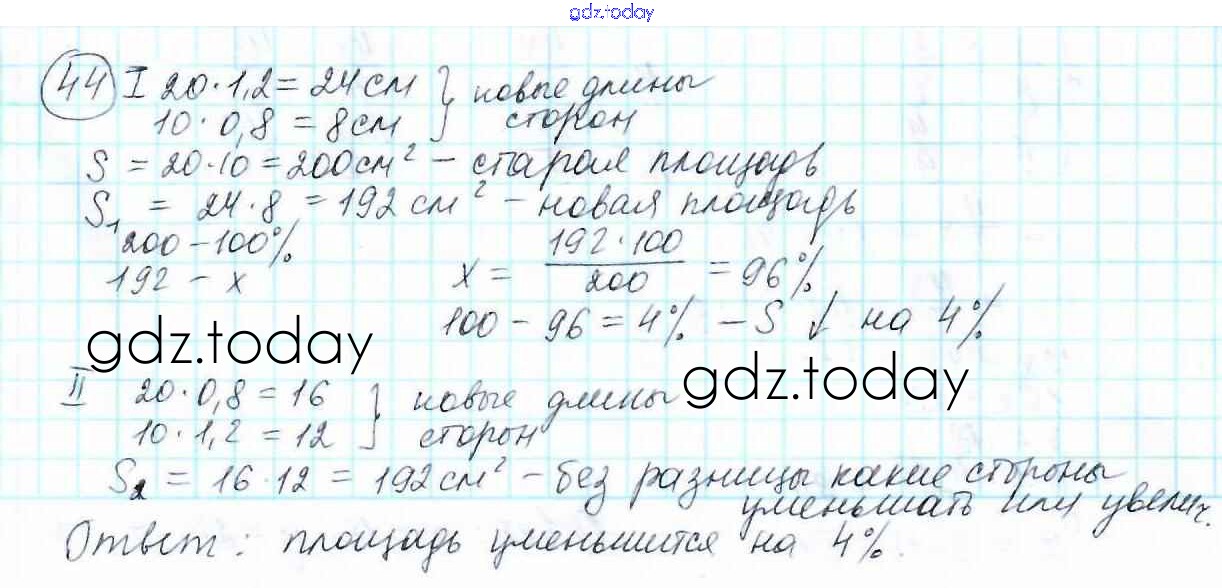 gdz.today
44 I 20·1,2=24см } новые длины
10·0,8=8см сторон
S=20·10=200см² – старая площадь
S₁ = 24·8 = 192 см² – новая площадь
200–100%
192 – x x = 192·100/200 = 96%
100–96=4% – S ↓ на 4%
gdz.today
gdz.today
II 20·0,8=16 } новые длины
10·1,2=12 сторон
S₂ = 16·12 = 192см² – без разницы какие стороны
уменьшать или увелич.
Ответ: площадь уменьшится на 4%.